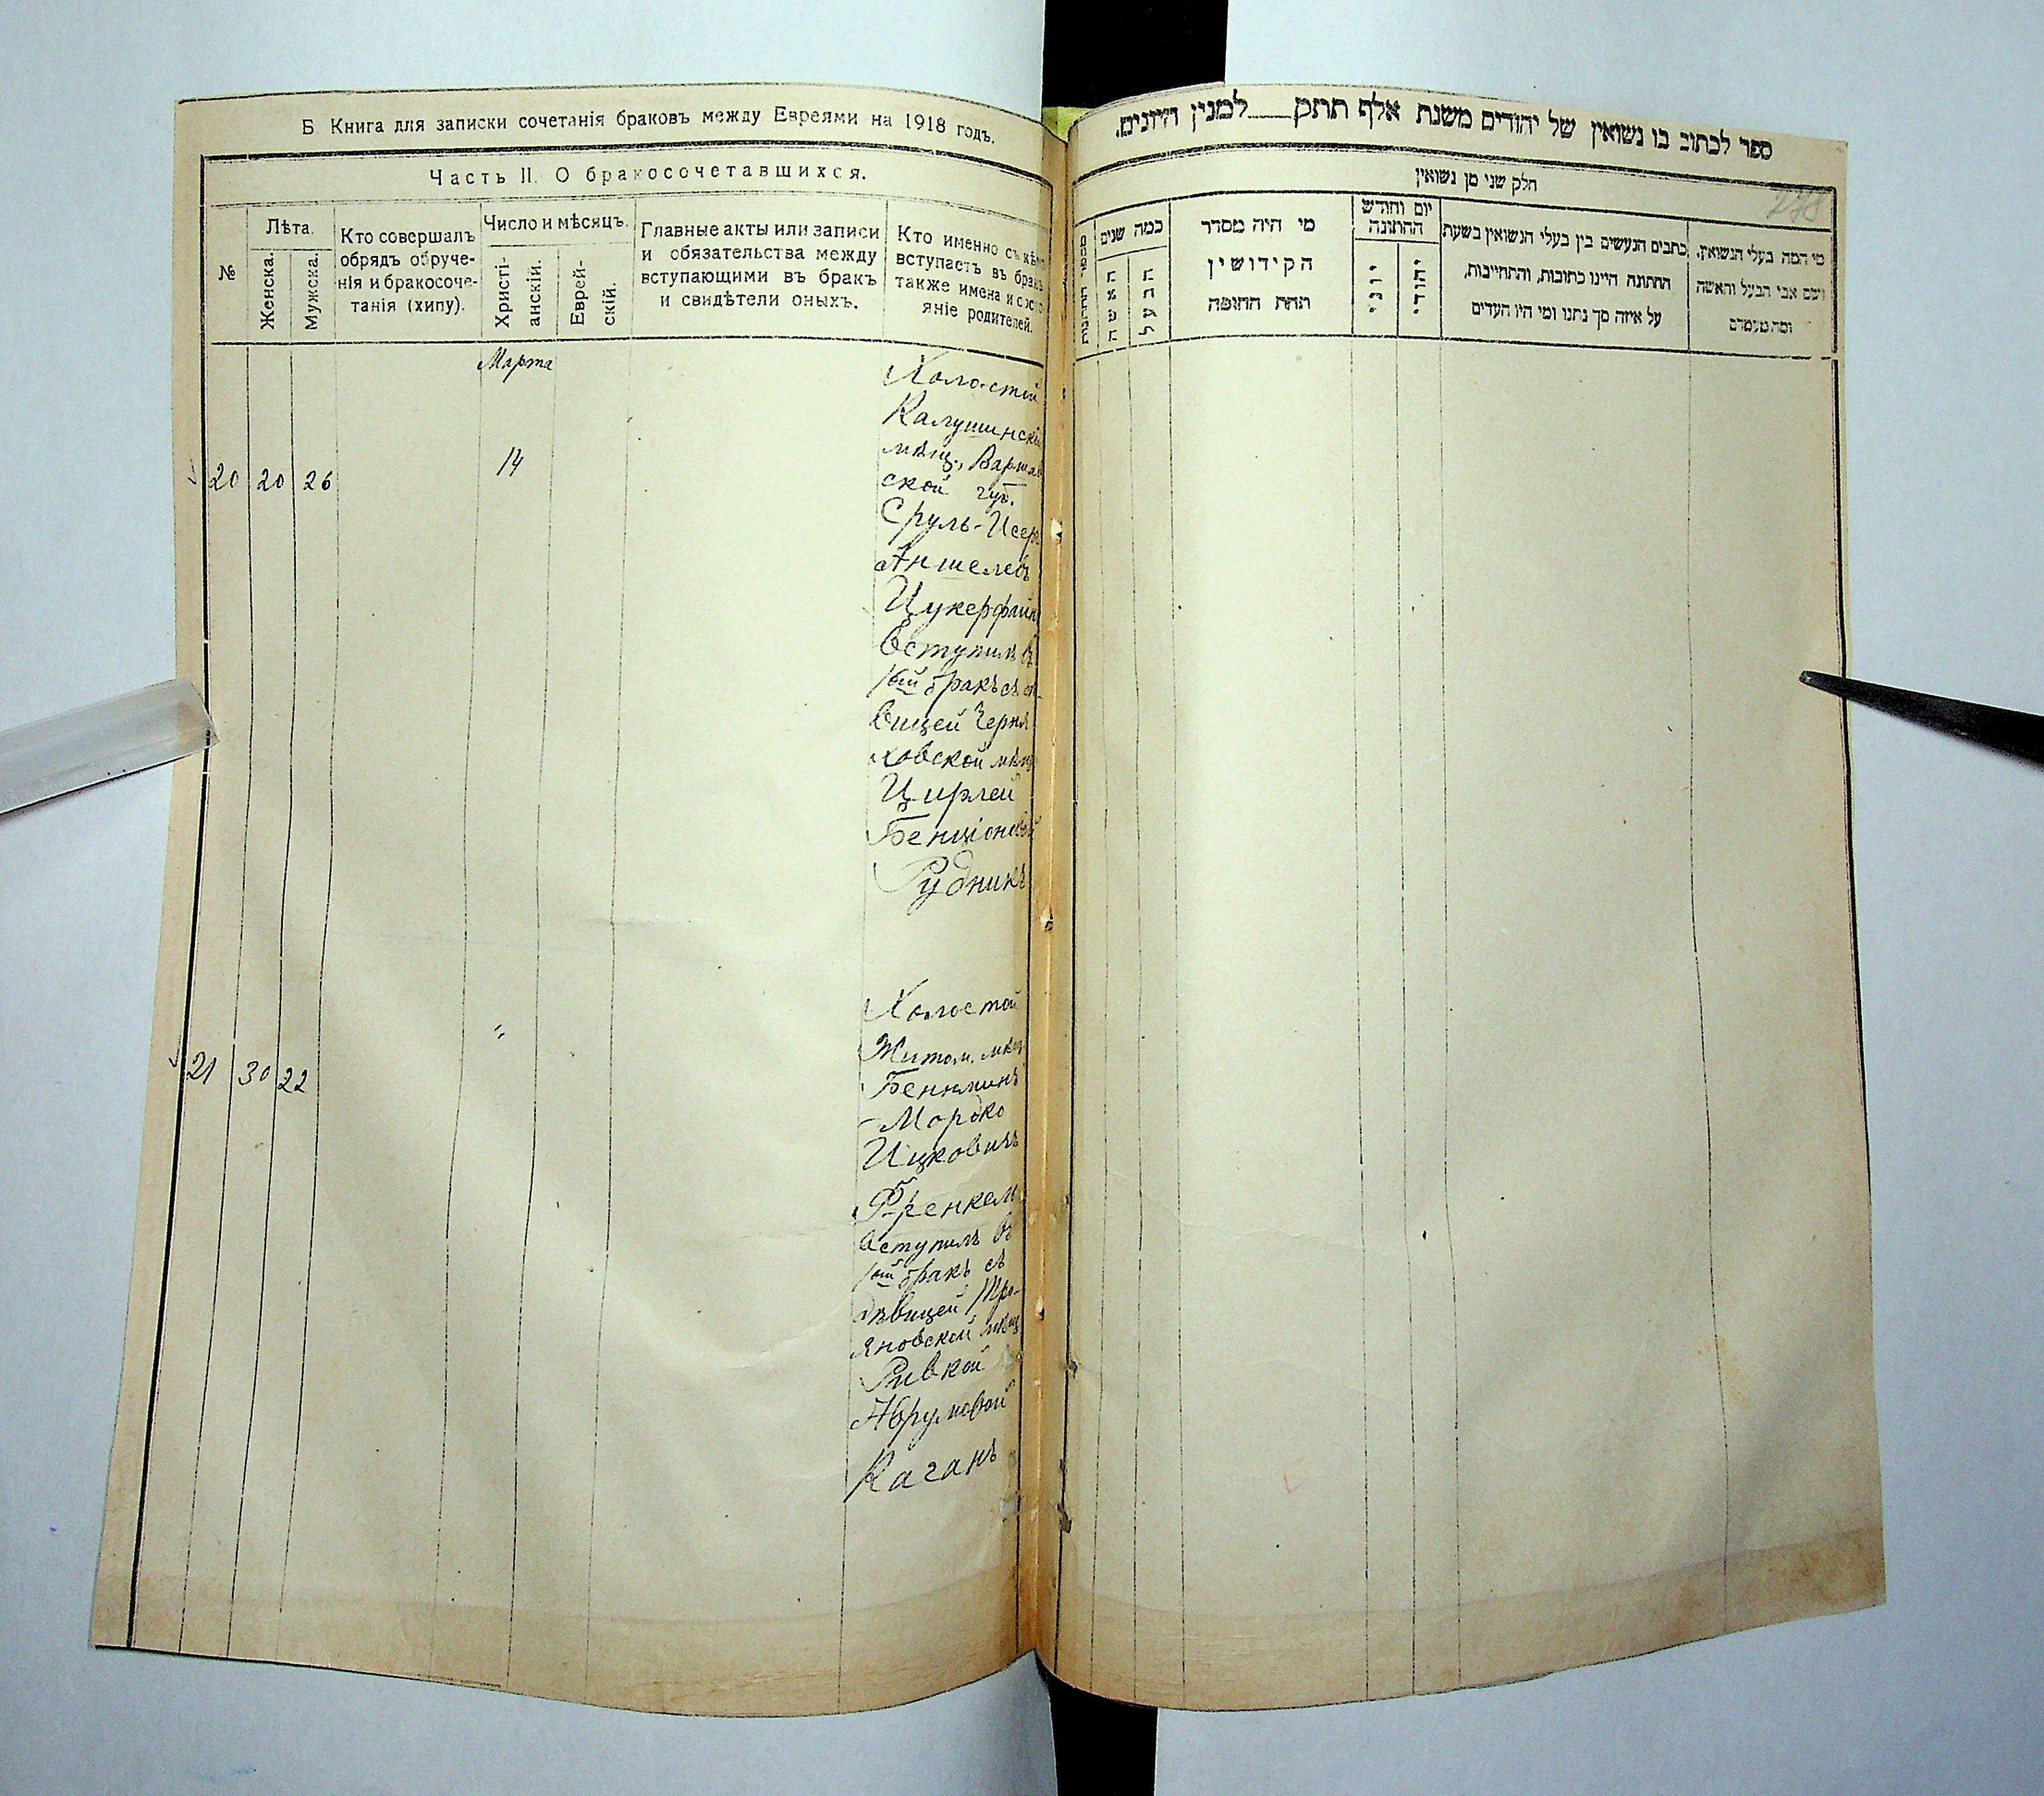 Б Книга для записки сочетанія браковъ между Евреями на 1918 годъ.
Часть II. О бракосочетавшихся.
№
Лѣта.
Женска.
Мужска.
Кто совершалъ
обрядъ обруче-
нія и бракосоче-
танія (хипу).
Число и мѣсяцъ.
Христі-
анскій.
Еврей-
скій.
Главные акты или записи
и обязательства между
вступающими въ бракъ
и свидѣтели оныхъ.
Кто именно съ кѣмъ
вступаетъ въ бракъ
также имена и состо-
яніе родителей.
Марта
20 20 26
14
Холостой
Калушинскій
мѣщ., Варшав
ской губ.
Сруль-Исеръ
Аншелевъ
Цукерфайн
вступилъ въ
1ый бракъ съ дѣ-
вицей Черня
ховской мѣщ
Цирлей
Бенціоновой
Рудникъ
21 30 22
"
Холостой
Житом. мѣщ
Беньминъ
-Мордко
Ицковичъ
Френкель
вступилъ въ
1ый бракъ съ
дѣвицей Тро-
яновской мѣщ
Ривкой
Каганъ
ספר לכתוב בו נשואין של יהודים משנת אלף תתק___למנין היונים.
278
חלק שני מן נשואין
מספר החתונות
כמה שנים
האשה
הבעל
מי היה מסדר
הקידושין
תחת החופה
יום וחודש
החתונה
יוני
יהודי
כתבים הנעשים בין בעלי הנשואין בשעת
החתונה היינו כתובות, והתחייבות,
על איזה סך נתנו ומי היו העדים
מי המה בעלי הנשואין,
ושם אבי הבעל והאשה
ומה מעמדם